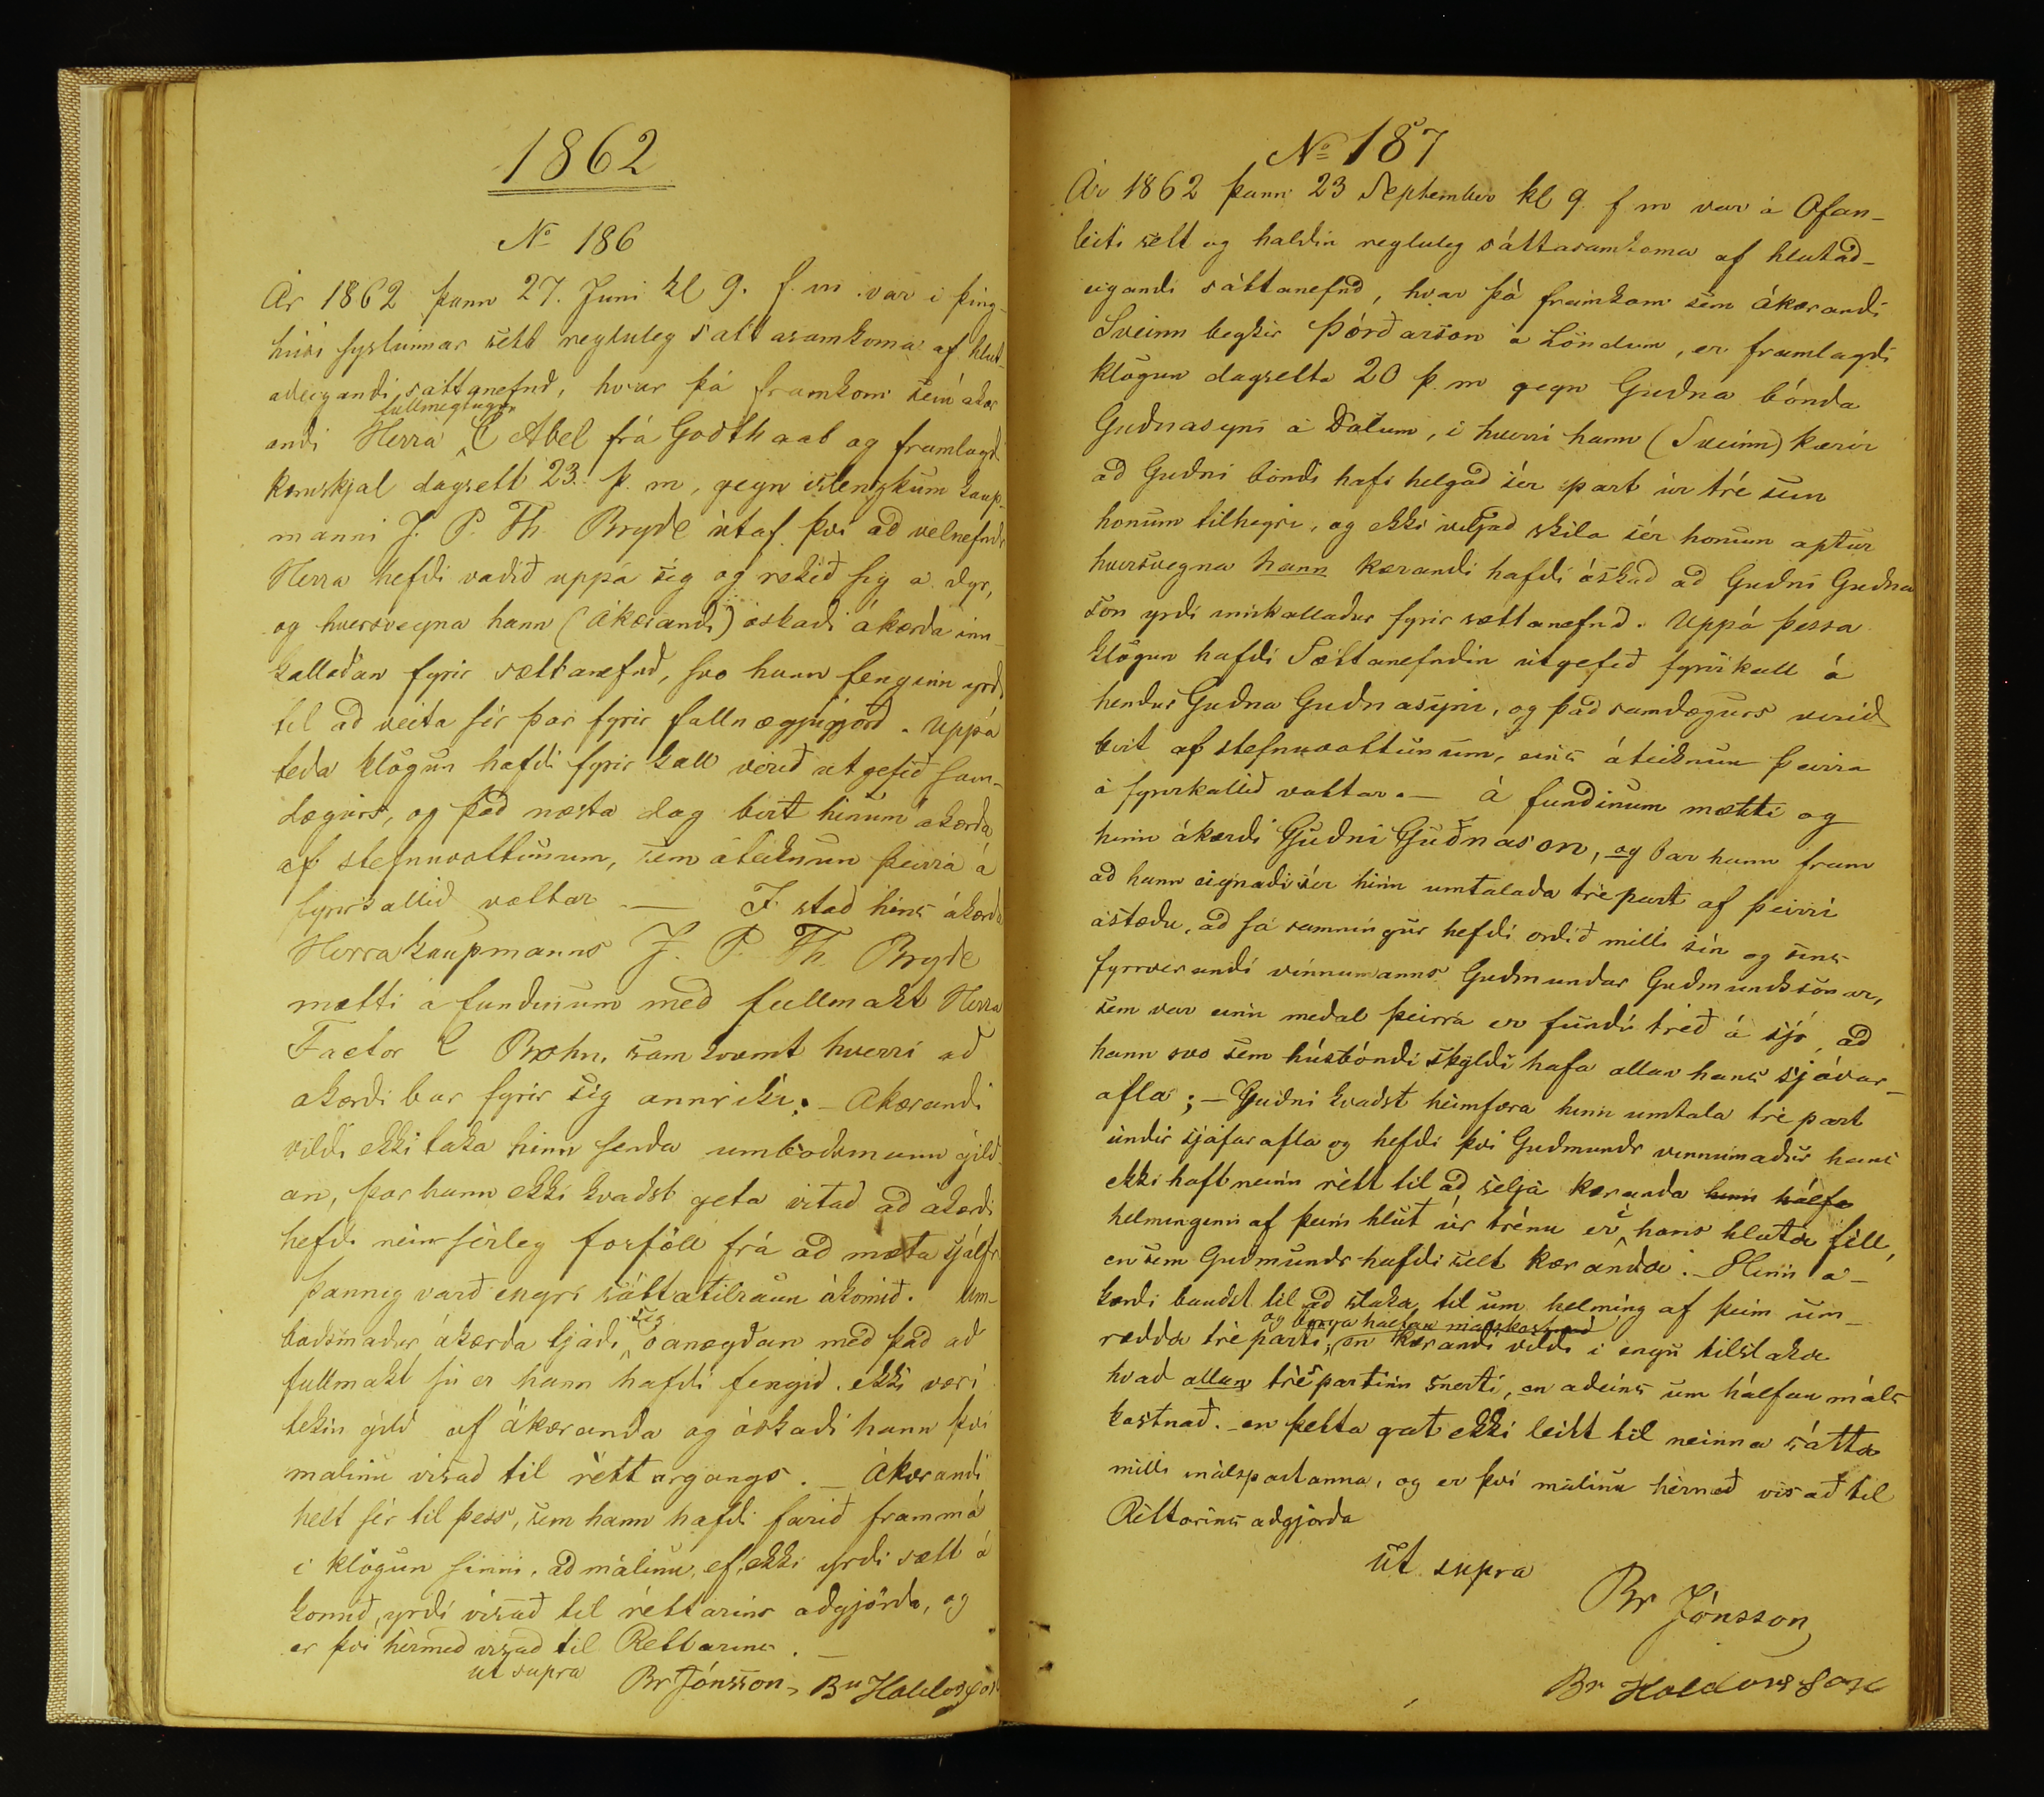 1862
No 186
Ár 1862 þann 27. Juni kl 9. f. m. var i þing-
húsi syslunnar sett regluleg sattasamkoma af hlut-
adeigandi sáttanefnd, hvar þá framkom sem ákær
fullmegtugur
andi Herra C Abel frá Godthaab og framlagd.
kæruskjal dagsett 23. þ. m, gegn islenzkum kaup-
manni J. P. Th. Bryde útaf þvi ad velnefndr
Herra hefdi vadid uppá sig og rekid sig á dyr,
og hversvegna hann (Ákærandi) óskadi ákærda inn-
kalladan fyrir sættanefnd, svo hann fenginn yrdi
til ad veita sér þar fyrir fullnægjugjörd. Uppá
teda klögun hafdi fyrir kall verid útgefid sam-
dægurs, og þad næsta dag birt hinum ákærda
af stefnuvottunum, sem áteiknun þeirra á
fyrirkallid vottar. — I stad hins ákærda
Herra kaupmanns J. P. Th. Bryde
mætti á fundinum med fullmakt Herra
Factor C Brohn, samkvæmt hverri ad
ákærdi bar fyrir sig annriki. — Ákærandi
vildi ekki taka hinn senda umbodsmann gild-
an, þar hann ekki kvadst geta vitad ad ákærdi
hefdi nein sérleg forföll frá ad mæta sjálfr
þannig vard engri sáttatilraun ákomid. Um-
sig
bodsmadur ákærda tjádi óánægdan med þad ad
fullmakt sú er hann hafdi fengid, ekki væri
tekin gild af ákæranda og óskadi hann þvi
málinu visad til réttargangs. — Ákærandi
helt sér til þess, sem hann hafdi farid frammá
i klögun sinni, ad málinu, ef ekki yrdi sætt á
komid, yrdi visad til réttarins adgjörda, og
er þvi hérmed visad til Rettarins. —
ut supra Br Jónsson, Br Haldorsson
No 187
Ár 1862 þann 23 September kl 9 f m var á Ofan-
leiti sett og haldin regluleg sáttasamkoma af hlutad-
eigandi sáttanefnd, hvar þá framkom sem ákærandi
Sveinn beykir Þórðarson á Löndum, er framlagdi
klögun dagsetta 20 þ. m gegn Gudna bónda
Gudnasyni á Dölum, i hverri hann (Sveinn) kærir
ad Gudni bóndi hafi helgad sér part úr tré sem
honum tilheyri, og ekki viljad skila sér honum aptur
hversvegna hann kærandi hafdi óskad ad Gudni Gudna
son yrdi innkalladur fyrir sættanefnd. Uppá þessa
klögun hafdi Sættanefndin útgefid fyrirkall á
hendur Gudna Gudnasyni, og þad samdægurs verid
birt af stefnuvottunum, eins áteiknun þeirra
á fyrirkallid vottar. — Á fundinum mætti og
hinn ákærdi Gudni Guðnason, og bar hann fram
ad hann eignadi sér hinn umtalada trépart af þeirri
ástædu, ad sá samningur hefdi ordid milli sin og sins
fyrrverandi vinnumanns Gudmundar Gudmundssonar,
sem var einn medal þeirra er fundu tréd á sjó, ad
hann svo sem húsbóndi skyldi hafa allan hans sjóvar-
afla; — Gudni kvadst heimfæra hinn umtala trépart
undir sjófarafla og hefdi þvi Gudmundr vinnumadur hans
ekki haft neinn rétt til ad selja kæranda hinn hálfa
helminginn af þeim hlut úr trénu er i hans hluta féll,
en sem Gudmundr hafdi selt kæranda. — Hinn á-
kærdi baudst til ad slaka til um helming af þeim um-
og borga hálfan málskostnad
rædda tréparti, en kærandi vildi i engu tilslaka
hvad allan trépartinn snerti, en adeins um hálfan máls
kostnad. en þetta gat ekki leitt til neinna sátta
milli málspartanna, og er þvi málinu hérmed visað til
Réttarins adgjörda
Ut supra
Br Jónsson
Br Haldorsson